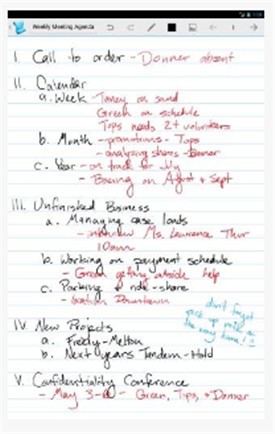 Weekly Meeting Agenda
I. Call to order - Donner absent
II. Calendar
a. Week - Toney on sand
Green on schedule
Tops needs 2+ volunteers
b. Month - promotions - Tops
- analyzing shares - Donner
c. Year - on track for July
- Boeing on August & Sept
III. Unfinished Business
a. Managing case loads
- interview Ms. Laurence Thur
10am
b. Working on payment schedule
- Green getting outside help
c. Parking & ride-share
- location Downtown
don't forget
pick up milk on
the way home!!
IV. New Projects
a. Freddy-Melton
b. Next years Tandem-Hold
V. Confidentiality Conference
- May 3-6 - Green, Tips, & Donner